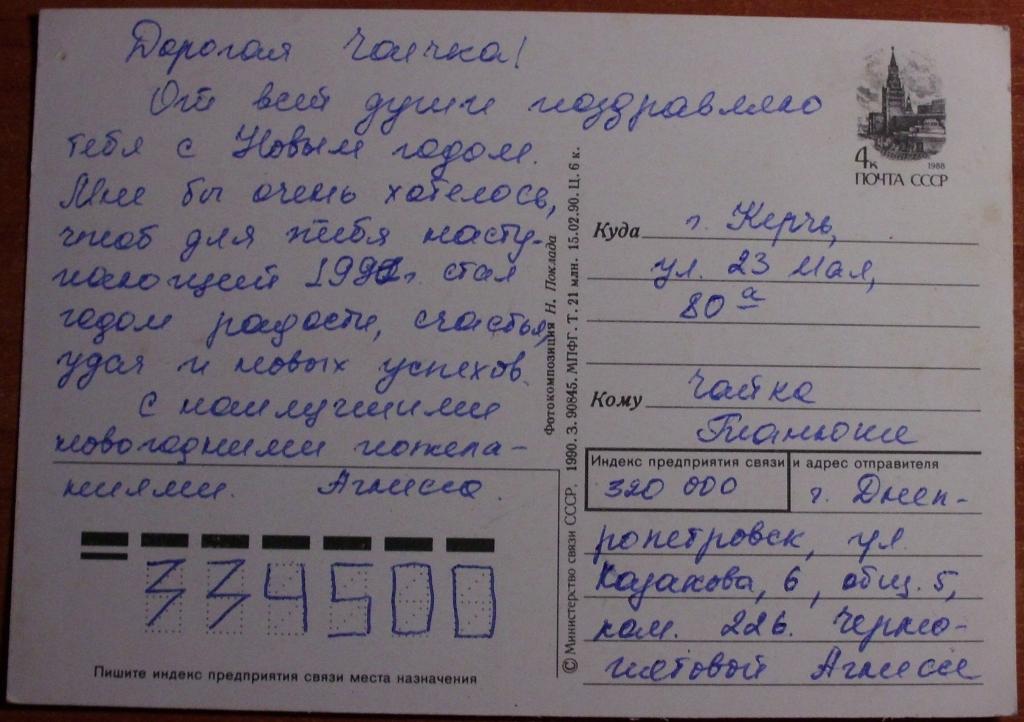 Дорогая Чаичка!
От всей души поздравляю
тебя с Новым годом.
Мне бы очень хотелось,
чтоб для тебя насту-
пающий 1991г. стал
годом радости, счастья,
удач и новых успехов.
С наилучшими
новогодними пожела-
ниями. Агнесса.
4к
1988
ПОЧТА СССР
Куда г. Керчь,
ул. 23 Мая,
80 а
Кому Чайка
Индекс предприятия связи и адрес отправителя
320 000 г. Днеп-
ропетровск, ул.
Казакова, 6, общ. 5,
ком. 226. Черно-
Агнессе
334500
Пишите индекс предприятия связи места назначения
Фотокомпозиция Н. Поклада
© Министерство связи СССР. 1990. З. 90845. МПФГ. Т. 21 млн. 15.02.90. Ц. 6 к.